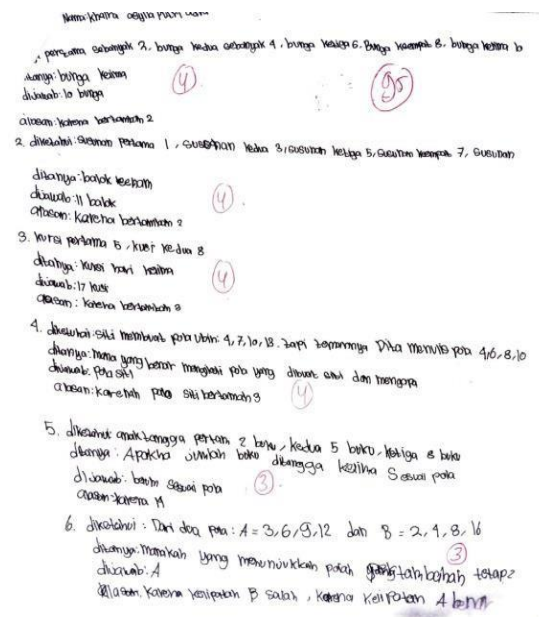 Nama: Khaira
pertama sebanyak 2, bunga kedua sebanyak 4, bunga ketiga 6. Bunga keempat 8. bunga kelima b
ditanya: bunga kelima
4
95
dijawab: 10 bunga
alasan: karena bertambah 2
2. diketahui: susunan pertama 1, susunan kedua 3, susunan ketiga 5, susunan keempat 7, susunan
ditanya: balok keenam
dijawab: 11 balok
4
alasan: karena bertambah 2
3. kursi pertama 5, kursi kedua 8
ditanya: kursi hari kelima
4
dijawab: 17 kursi
alasan: karena bertambah 3
4. diketahui: siti membuat pola ubin: 4, 7, 10, 13. tapi temannya Dita menulis pola 4, 6, 8, 10
ditanya: mana yang benar pola yang dibuat siti dan mengapa
dijawab: pola siti
alasan: karenah pola siti bertambah 3
4
5. diketahui anak tangga pertam 2 buku, kedua 5 buku, ketiga 8 buku
ditanya: Apakha jumlah buku ditangga kelima Sesuai pola
dijawab: belum sesuai pola
3
alasan: karena 14
6. diketahui: Dari dua pola: A = 3, 6, 9, 12 dan B = 2, 4, 8, 16
3
ditanya: manakah yang menunjukkan polah tambahah tetap?
dijawab: A
Alasan: karena kelipatan B salah, karena kelipatan A benar